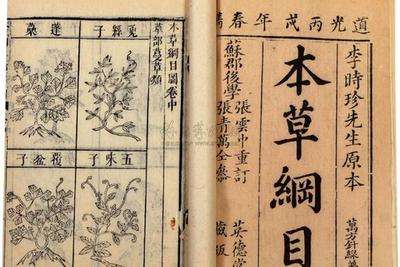 道光丙戌年春
李時珍先生原本
萬方針線
本草綱目
蘇郡後學
張雲中重訂
張青萬仝參
英德堂
藏板
本草綱目圖卷中
草部蔓草類
菟絲子
蓬蘽
五味子
覆盆子